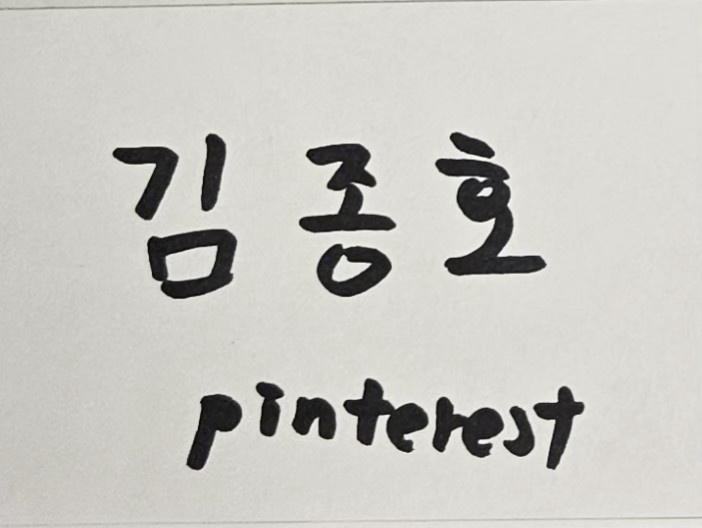 김종호
pinterest